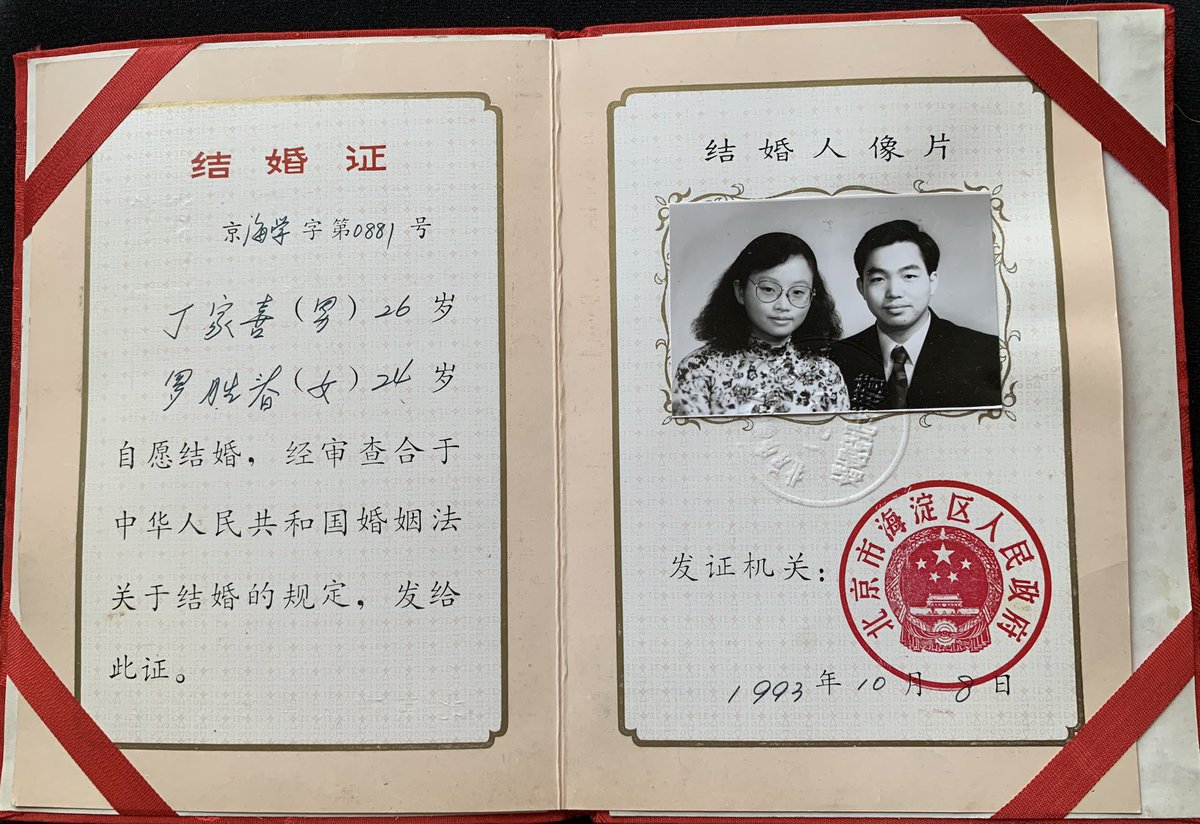 结婚证
京海学字第0881号
丁家喜（男）26岁
罗胜春（女）24岁
自愿结婚，经审查合于
中华人民共和国婚姻法
关于结婚的规定，发给
此证。
结婚人像片
发证机关：
北京市海淀区人民政府
1993年10月8日